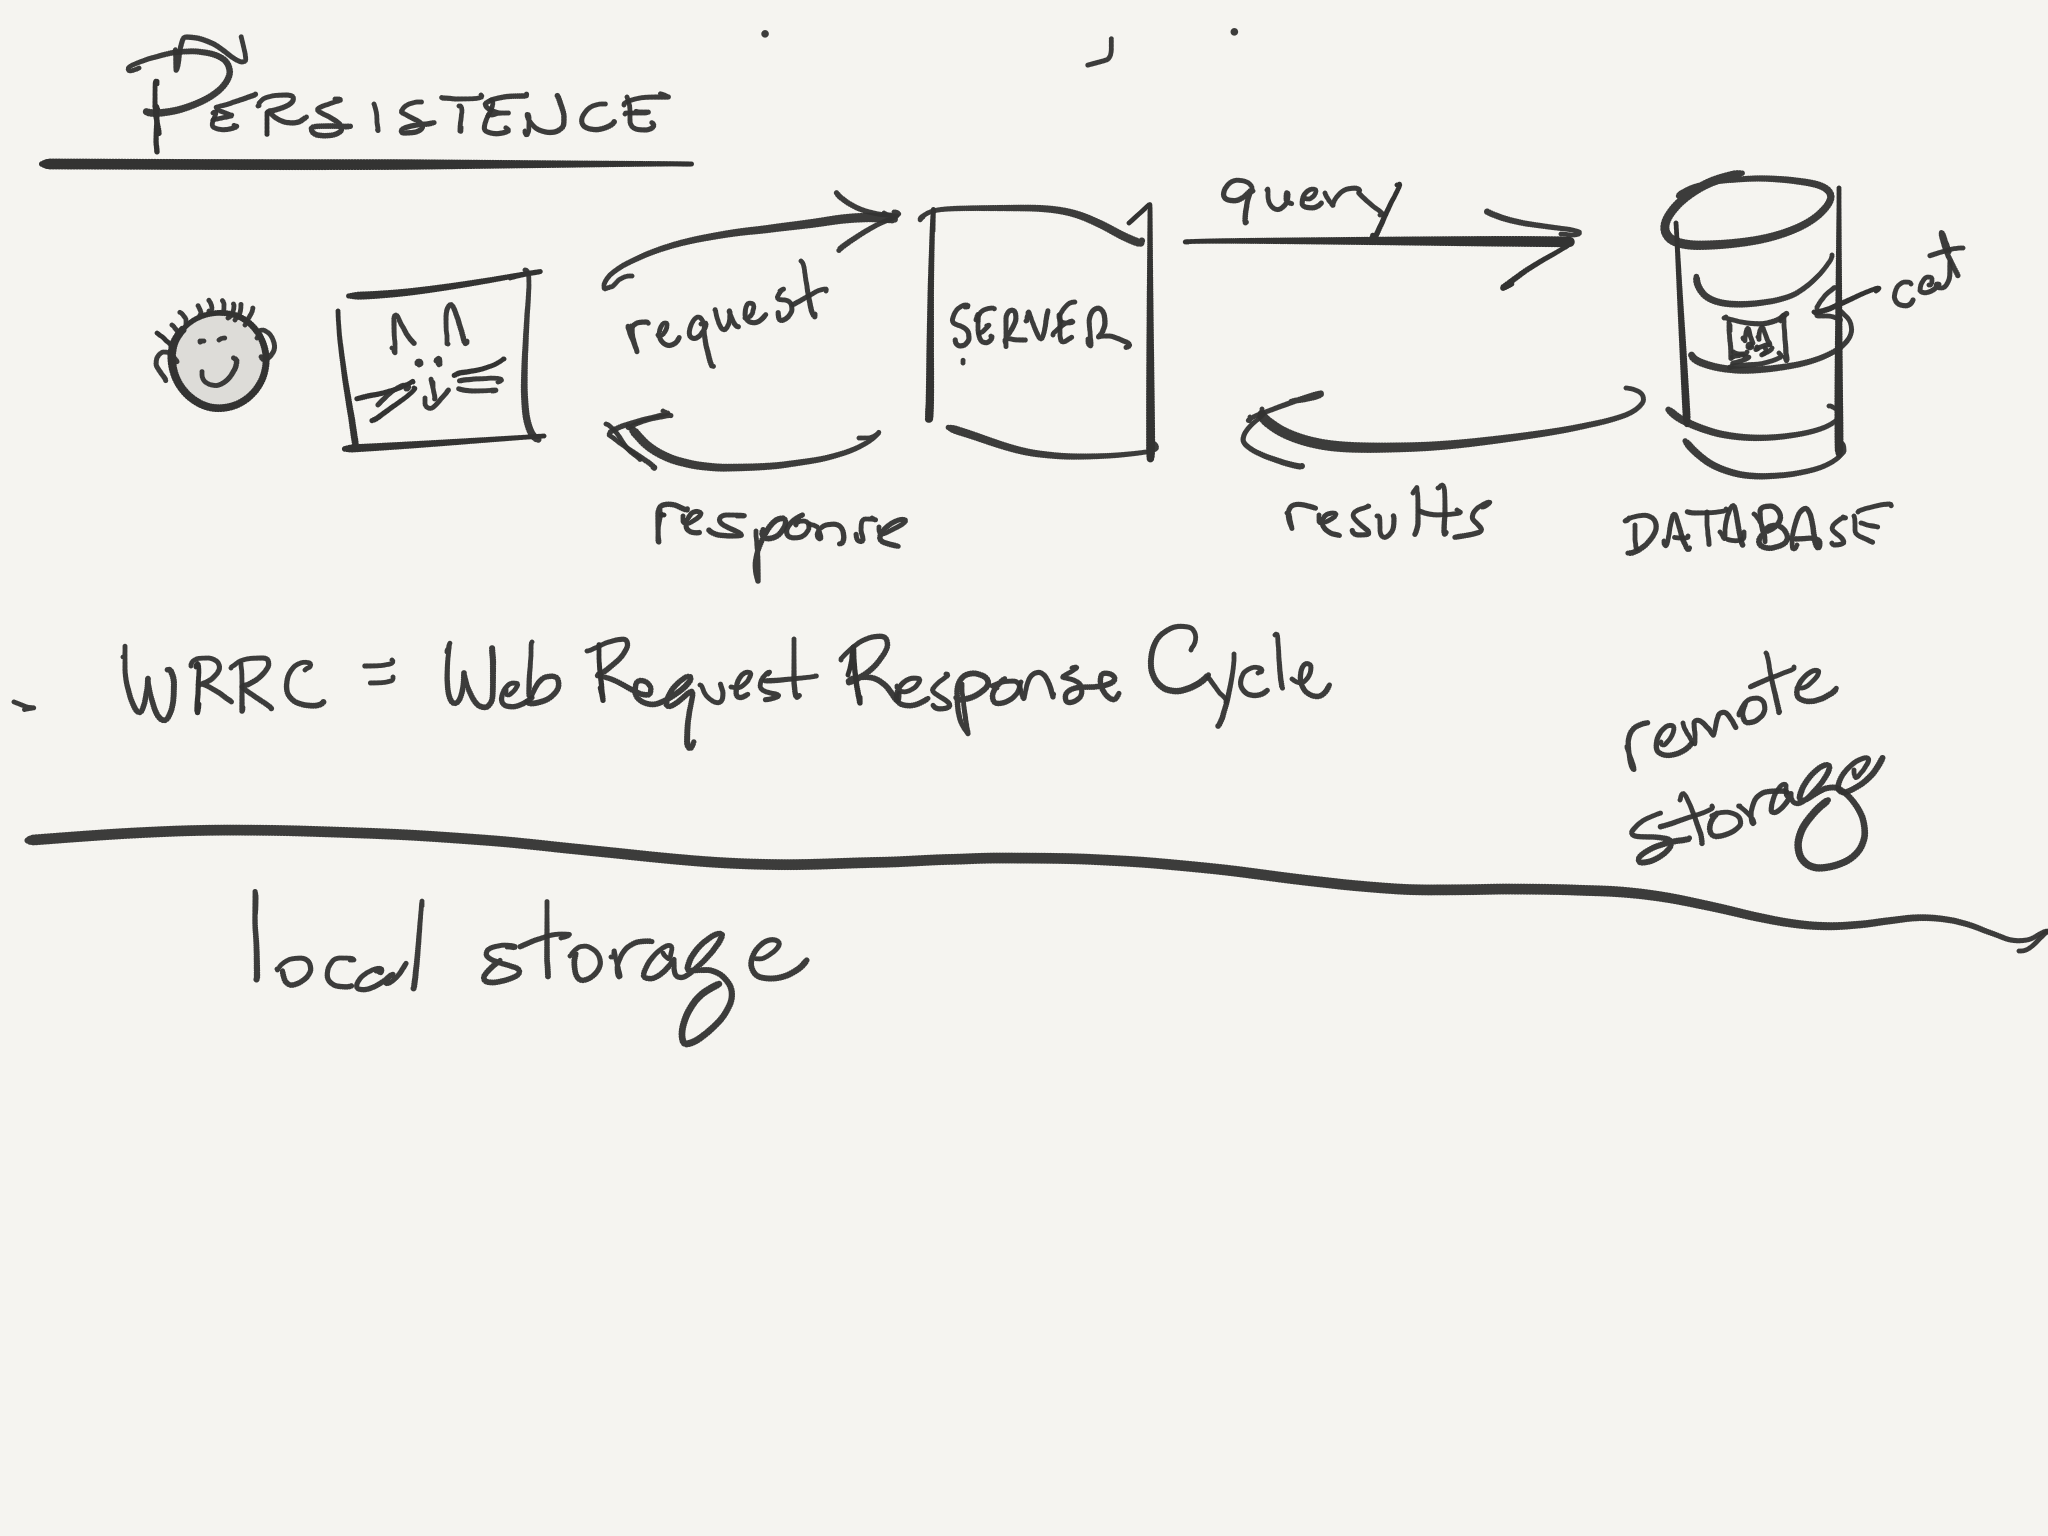 PERSISTENCE
query
cat
request
SERVER
response
results
DATABASE
WRRC = Web Request Response Cycle
remote
storage
local storage